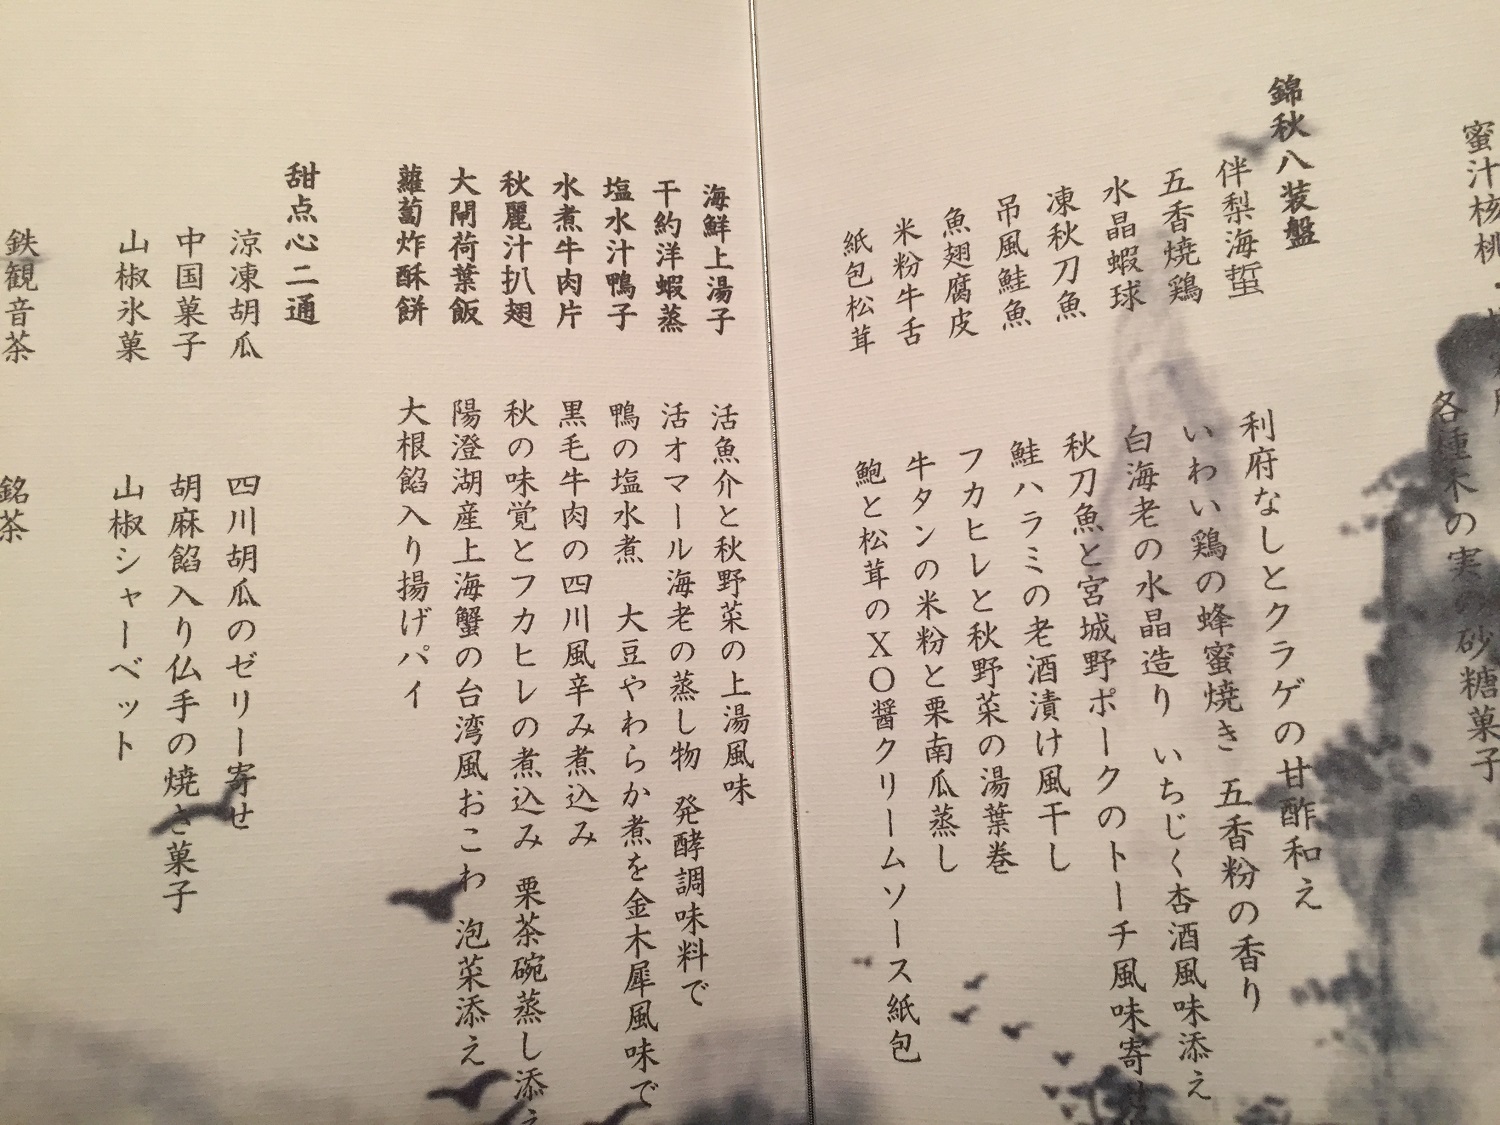 蜜汁核桃・
各種木の実の砂糖菓子
錦秋八装盤
伴梨海蜇
利府なしとクラゲの甘酢和え
五香焼鶏
いわい鶏の蜂蜜焼き 五香粉の香り
水晶蝦球
白海老の水晶造り いちじく杏酒風味添え
凍秋刀魚
秋刀魚と宮城野ポークのトーチ風味寄せ
吊風鮭魚
鮭ハラミの老酒漬け風干し
魚翅腐皮
フカヒレと秋野菜の湯葉巻
米粉牛舌
牛タンの米粉と栗南瓜蒸し
紙包松茸
鮑と松茸のXO醤クリームソース紙包
海鮮上湯子
活魚介と秋野菜の上湯風味
干約洋蝦蒸
活オマール海老の蒸し物 発酵調味料で
塩水汁鴨子
鴨の塩水煮 大豆やわらか煮を金木犀風味で
水煮牛肉片
黒毛牛肉の四川風辛み煮込み
秋麗汁扒翅
秋の味覚とフカヒレの煮込み 栗茶碗蒸し添え
大閘荷葉飯
陽澄湖産上海蟹の台湾風おこわ 泡菜添え
蘿蔔炸酥餅
大根餡入り揚げパイ
甜点心二通
涼凍胡瓜
四川胡瓜のゼリー寄せ
中国菓子
胡麻餡入り仏手の焼き菓子
山椒氷菓
山椒シャーベット
鉄観音茶
銘茶